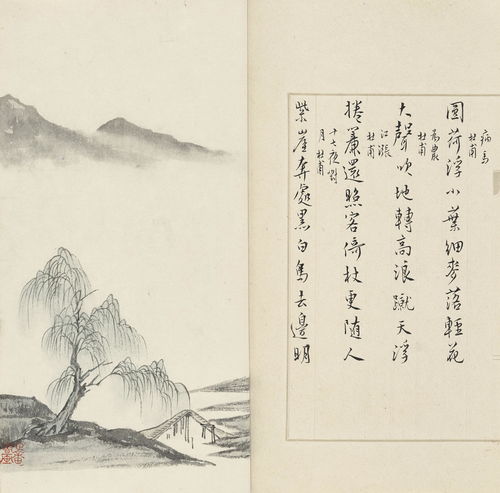 病馬
杜甫
圓荷浮小葉細麥落輕花
為農
杜甫
大聲吹地轉高浪蹴天浮
江漲
杜甫
捲簾還照客倚杖更隨人
十七夜對
月杜甫
紫崖奔處黑白鳥去邊明